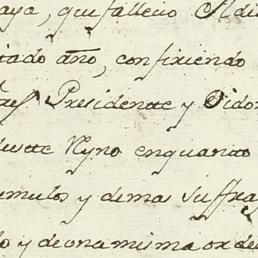 aya, que fallecio el di
tado año, confiriendo
Presidente y Oidor
este Reyno enquanto
tumulos y demas suffra
lo y deuna misma orde